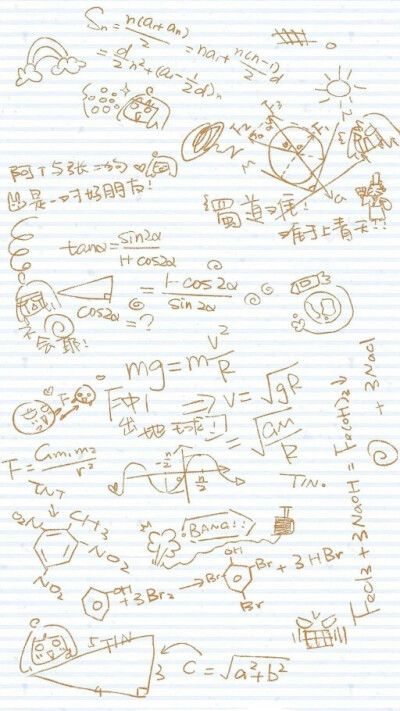 Sₙ = n(a₁+aₙ)/2 = na₁ + n(n-1)/2 d
= d/2 n² + (a₁ - 1/2 d)n
阿T与张二狗
是一对好朋友!
蜀道难
难于上青天!!
tanα = sin2α/1+cos2α
= 1-cos2α/sin2α
cos2α = ?
不会耶!
mg = m v²/R
⇒ v = √gR
= √GM/R
出地球!
F
F = Gm₁m₂/r²
π/2
TIN.
TNT
O₂N
CH₃
NO₂
NO₂
BANG!!
T
OH
+ 3Br₂ →
OH
Br
Br
Br
+ 3HBr
FeCl₃ + 3NaOH = Fe(OH)₃↓ + 3NaCl
5 TIN
3
4
C = √a²+b²